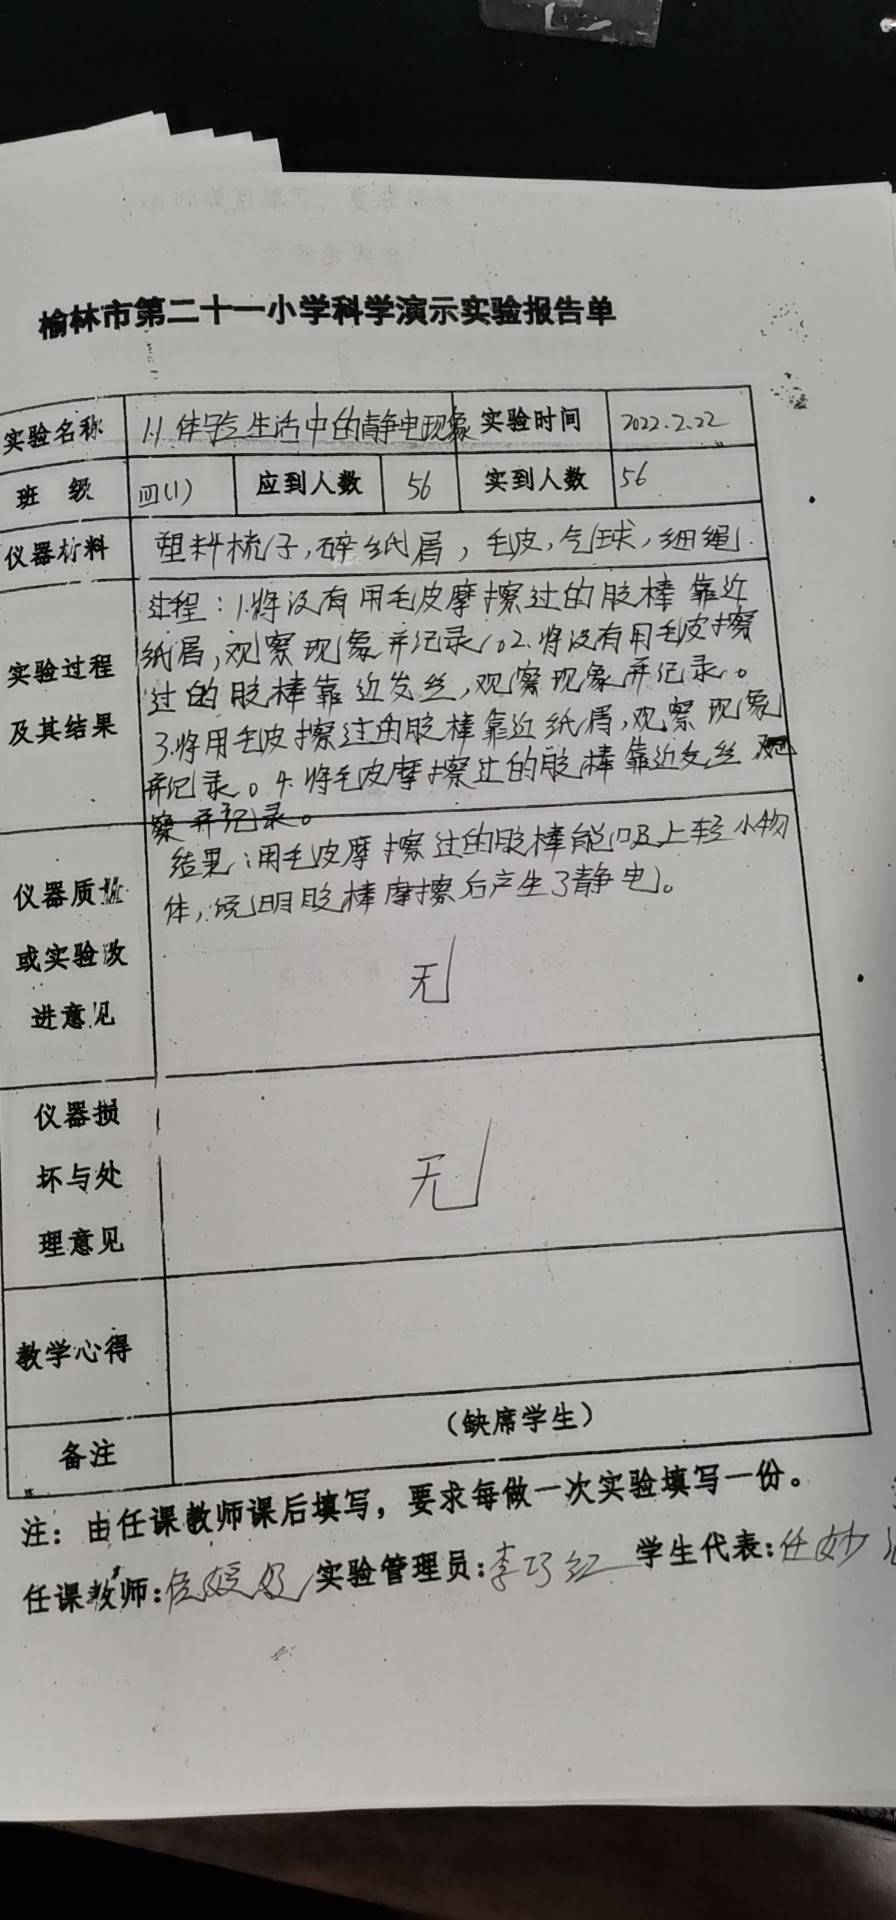 榆林市第二十一小学科学演示实验报告单
实验名称 1.1 体验生活中的静电现象 实验时间 2022.2.22
班 级 四(1) 应到人数 56 实到人数 56
仪器材料 塑料梳子,碎纸屑,毛皮,气球,细绳.
实验过程
及其结果
过程:1.将没有用毛皮摩擦过的胶棒靠近
纸屑,观察现象并记录。2.将没有用毛皮擦
过的胶棒靠近发丝,观察现象并记录。
3.将用毛皮擦过的胶棒靠近纸屑,观察现象
并记录。4.将毛皮摩擦过的胶棒靠近发丝 观
察并记录。
结果:用毛皮摩擦过的胶棒能吸上轻小物
体,说明胶棒摩擦后产生了静电。
仪器质量
或实验改
进意见
无
仪器损
坏与处
理意见
无
教学心得
备注 (缺席学生)
注:由任课教师课后填写,要求每做一次实验填写一份。
任课教师: 实验管理员:李巧红 学生代表:任妙